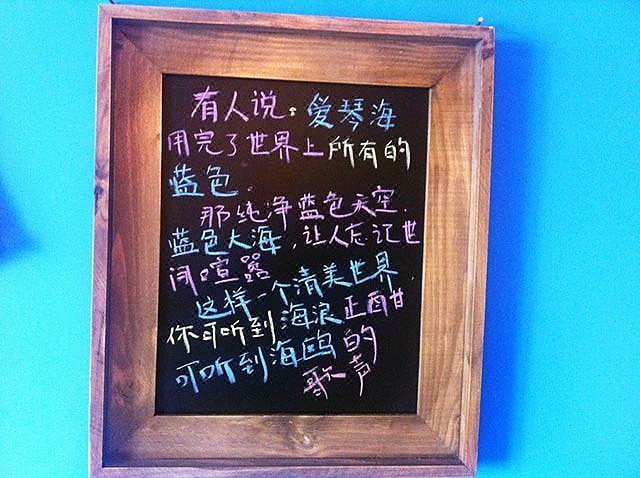 有人说:爱琴海
用完了世界上所有的
蓝色.
那纯净蓝色天空.
蓝色大海,让人忘记世
间喧嚣
这样一个清美世界.
你可听到海浪正酣甘.
可听到海鸥的
歌声